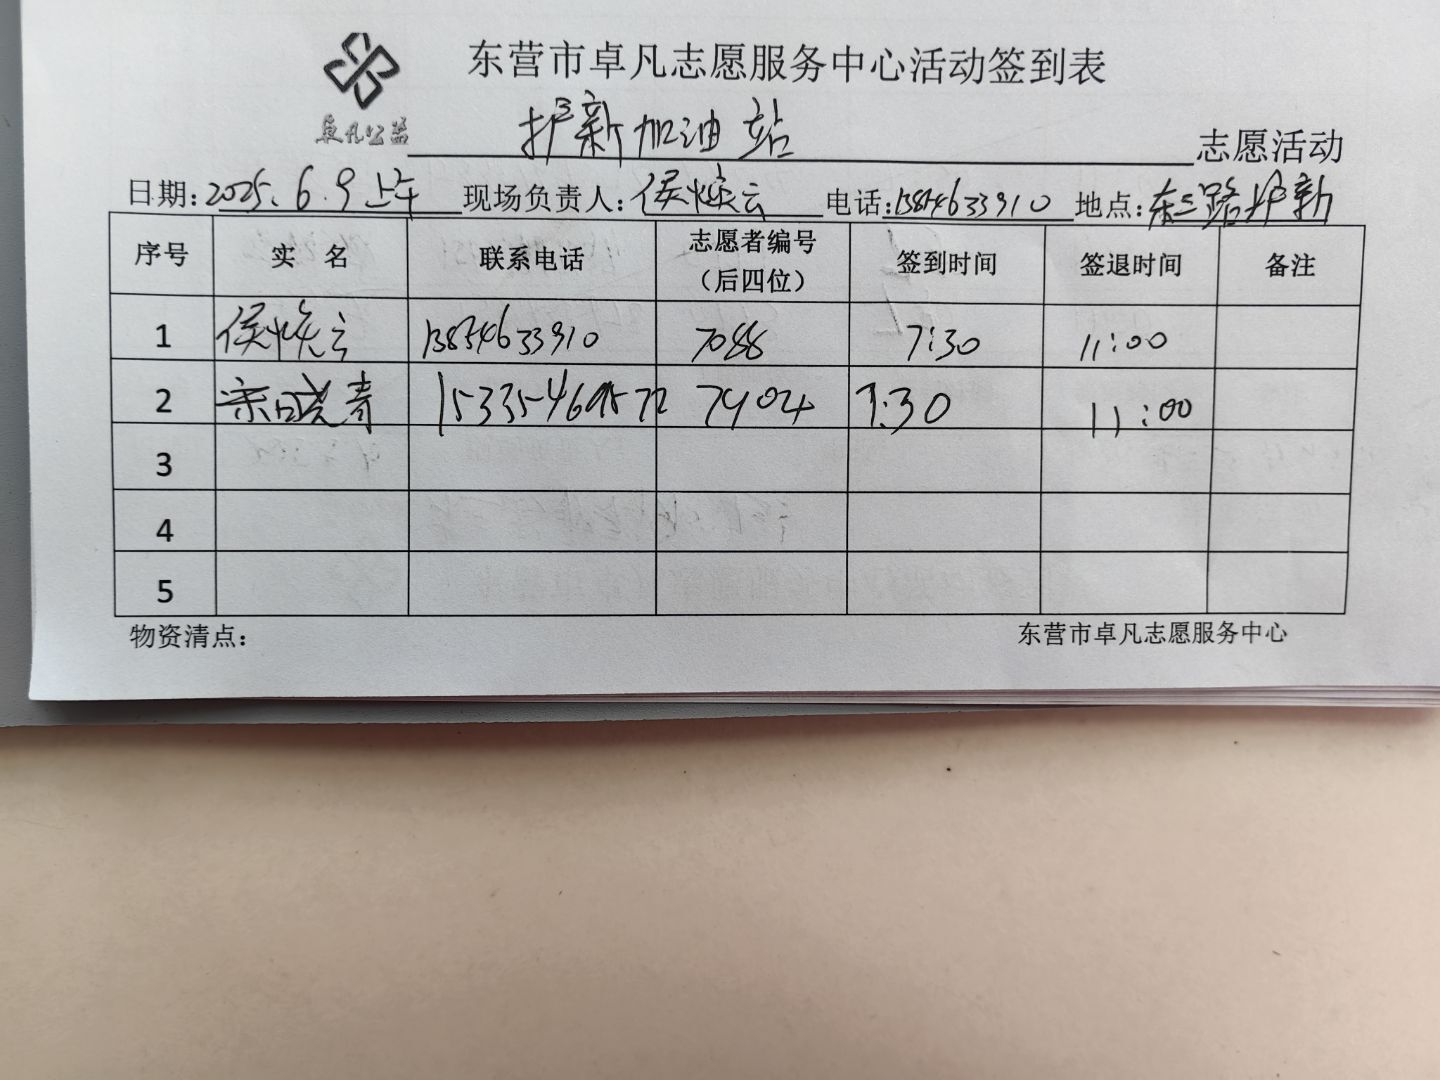 东营市卓凡志愿服务中心活动签到表
卓凡公益
护新加油站 志愿活动
日期：2025.6.9上午 现场负责人：侯焕云 电话：13854633910 地点：东三路护新
序号 实 名 联系电话 志愿者编号（后四位） 签到时间 签退时间 备注
1 侯焕云 13854633910 7088 7:30 11:00
2 宋晓青 7904 7:30 11:00
3
4
5
物资清点： 东营市卓凡志愿服务中心